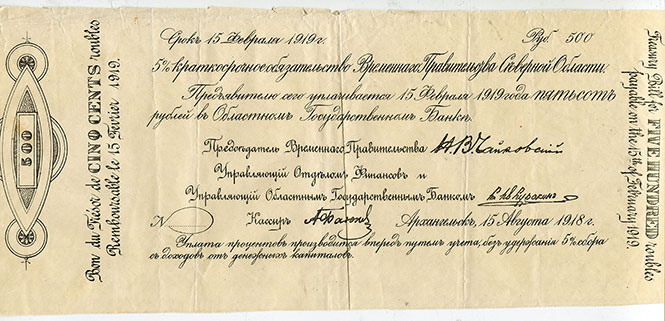 Срокъ 15 Февраля 1919 г. Руб. 500
5% краткосрочное обязательство Временнаго Правительства Сѣверной Области.
Предъявителю сего уплачивается 15 Февраля 1919 года пятьсотъ
рублей въ Областномъ Государственномъ Банкѣ.
Предсѣдатель Временнаго Правительства Н.В.Чайковскій
Управляющій Отдѣломъ Финансовъ и
Управляющій Областнымъ Государственнымъ Банкомъ
N Кассиръ Архангельскъ, 15 Августа 1918 г.
Уплата процентовъ производится впередъ путемъ учета, безъ удержанія 5% сбора
съ доходовъ отъ денежныхъ капиталовъ.
500
Bon du Trésor de CINQ CENTS roubles
Remboursable le 15 Février 1919.
Treasury Bill for FIVE HUNDRED roubles
payable on the 15th of February 1919.